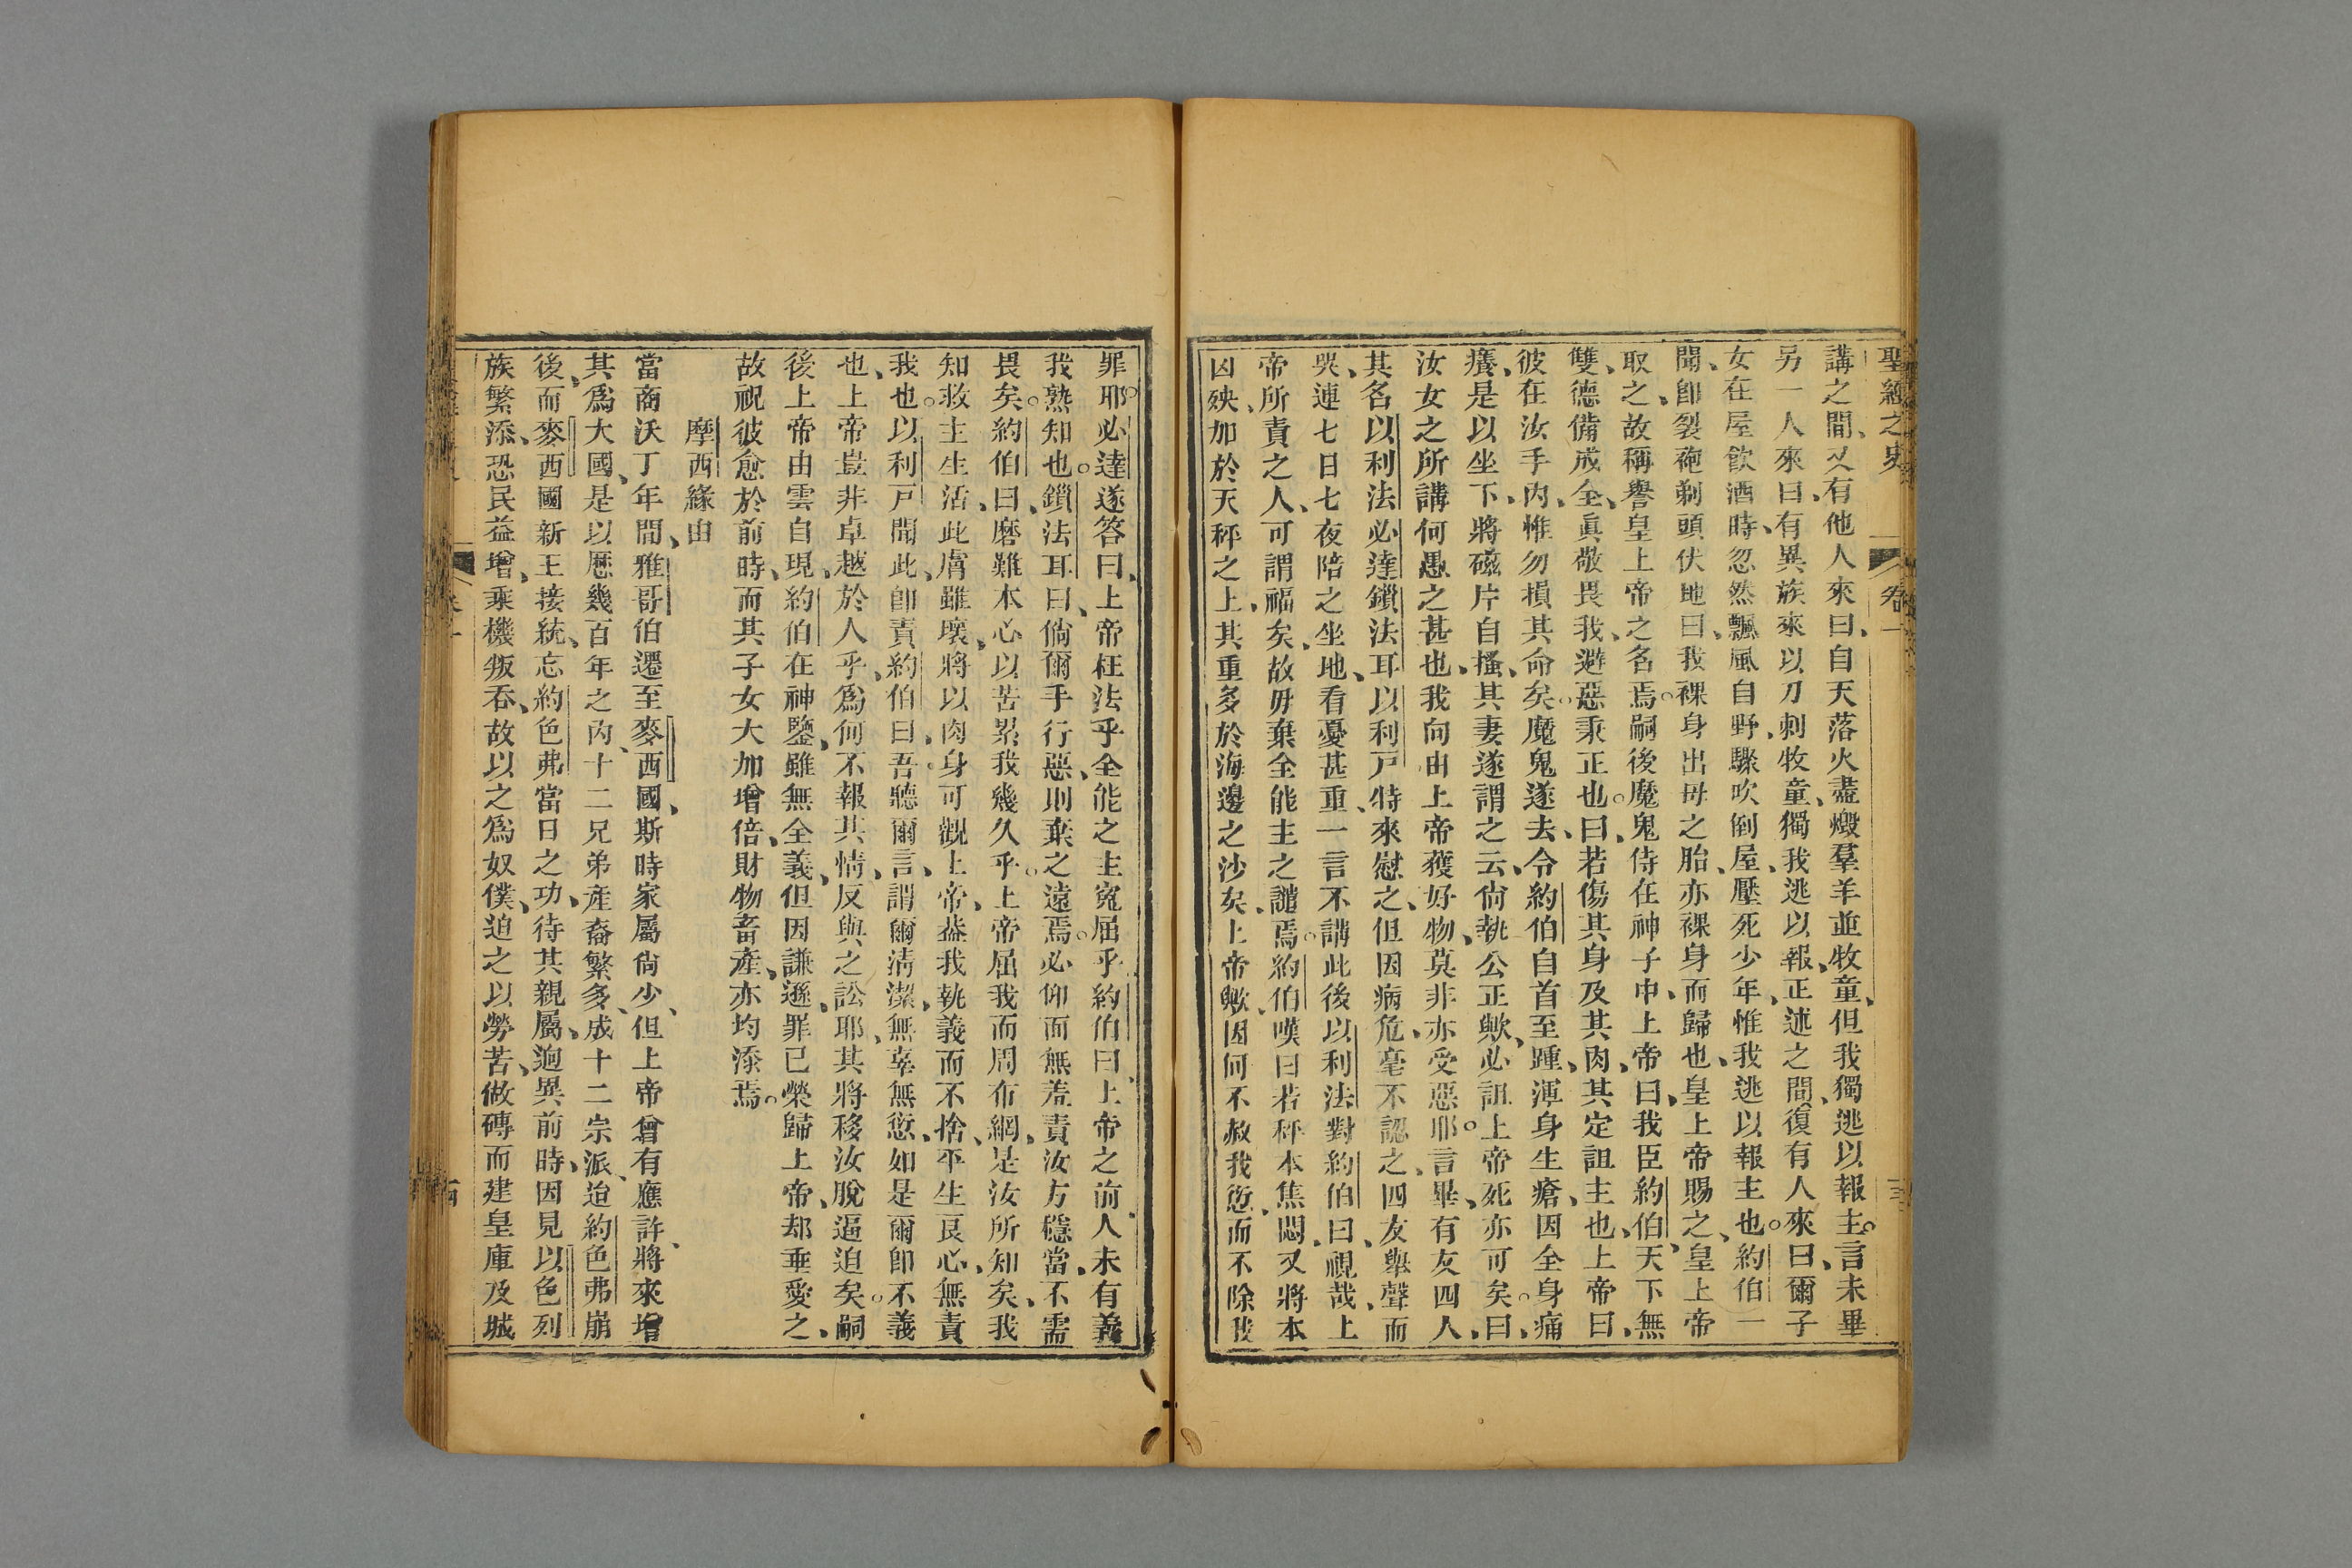 聖經之史 卷一
講之間、又有他人來曰、自天落火盡燬羣羊並牧童、但我獨逃以報主。言未畢
另一人來曰、有異族來以刀刺牧童、獨我逃以報、正述之間、復有人來曰、爾子
女在屋飲酒時、忽然飄風自野驟吹倒屋、壓死少年、惟我逃以報主也。約伯一
聞、卽裂袍剃頭伏地曰、我裸身出母之胎、亦裸身而歸也、皇上帝賜之、皇上帝
取之、故稱譽皇上帝之名焉。嗣後魔鬼侍在神子中、上帝曰、我臣約伯、天下無
雙、德備成全、眞敬畏我、避惡秉正也。曰、若傷其身及其肉、其定詛主也、上帝曰、
彼在汝手內、惟勿損其命矣。魔鬼遂去、令約伯自首至踵、渾身生瘡、因全身痛
癢、是以坐下、將磁片自搔、其妻遂謂之云、尙執公正歟、必詛上帝死亦可矣。曰、
汝女之所講何愚之甚也、我向由上帝獲好物、莫非亦受惡耶。言畢、有友四人、
其名以利法必達鎖法耳以利戶特來慰之、但因病危、毫不認之、四友舉聲而
哭、連七日七夜陪之坐地、看憂甚重、一言不講、此後以利法對約伯曰、視哉、上
帝所責之人、可謂福矣、故毋棄全能主之譴焉。約伯嘆曰、若秤本焦悶、又將本
凶殃、加於天秤之上、其重多於海邊之沙矣、上帝歟、因何不赦我愆、而不除我
罪耶。必達遂答曰、上帝枉法乎、全能之主寃屈乎、約伯曰、上帝之前、人未有義
我熟知也。鎖法耳曰、倘爾手行惡、則棄之遠焉。必仰面無羞、責汝方穩當、不需
畏矣。約伯曰、磨難本心、以苦累我幾久乎。上帝屈我而周布網、是汝所知矣、我
知救主生活、此膚雖壞、將以肉身可觀上帝、葢我執義而不捨、平生良心、無責
我也。以利戶聞此、卽責約伯曰、吾聽爾言、謂爾淸潔、無辜無愆、如是爾卽不義
也、上帝豈非卓越於人乎、爲何不報其情、反與之訟耶、其將移汝脫逼迫矣。嗣
後上帝由雲自現、約伯在神鑒、雖無全義、但因謙遜、罪已榮歸上帝、却垂愛之、
故視彼愈於前時、而其子女大加增倍、財物畜產、亦均添焉。
摩西緣由
當商沃丁年間、雅哥伯遷至麥西國、斯時家屬尙少、但上帝曾有應許、將來增
其爲大國、是以歷幾百年之內、十二兄弟產裔繁多、成十二宗派、迨約色弗崩
後、而麥西國新王接統、忘約色弗當日之功、待其親屬、迥異前時、因見以色列
族繁添、恐民益增、乘機叛吞、故以之爲奴僕、迫之以勞苦、做磚而建皇庫及城